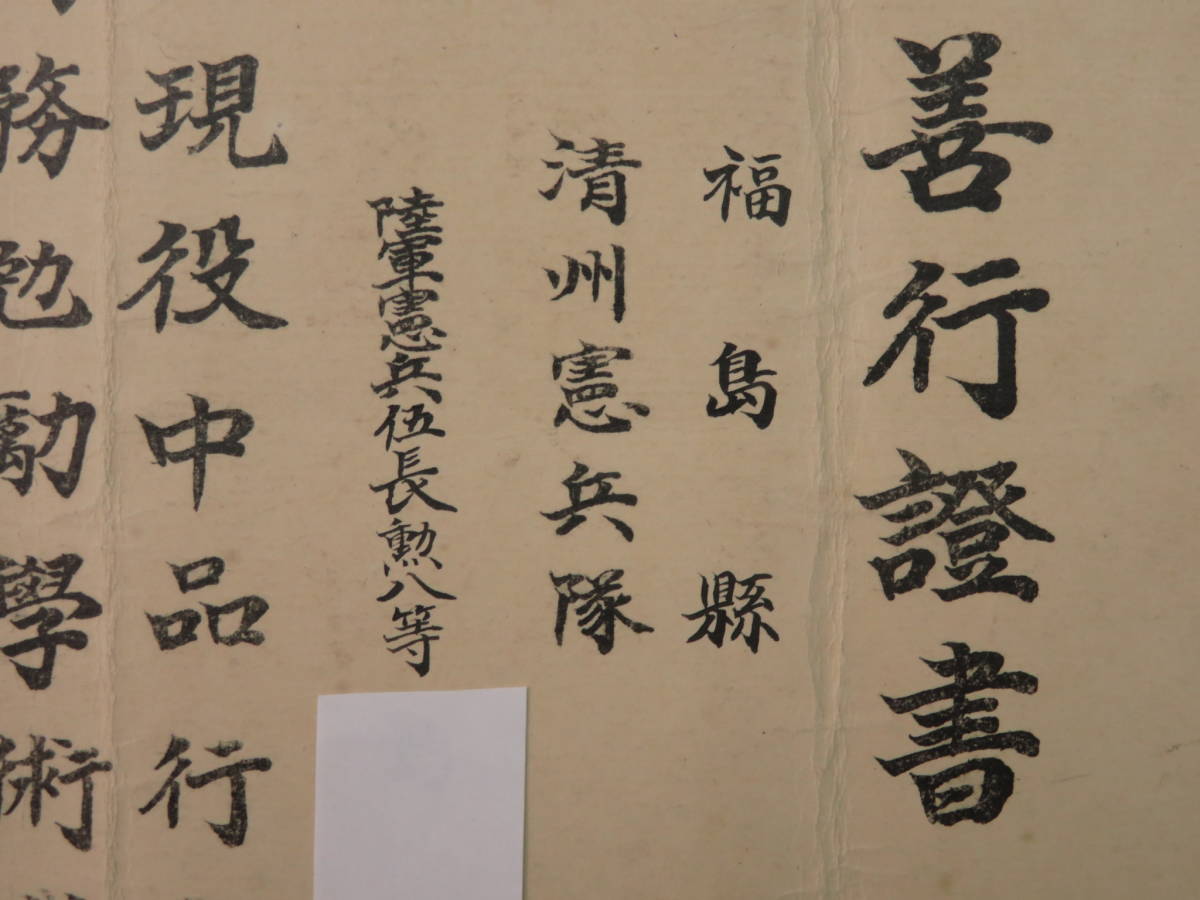 善行證書
福島縣
清州憲兵隊
陸軍憲兵伍長勲八等
現役中品行
務勉勵學術